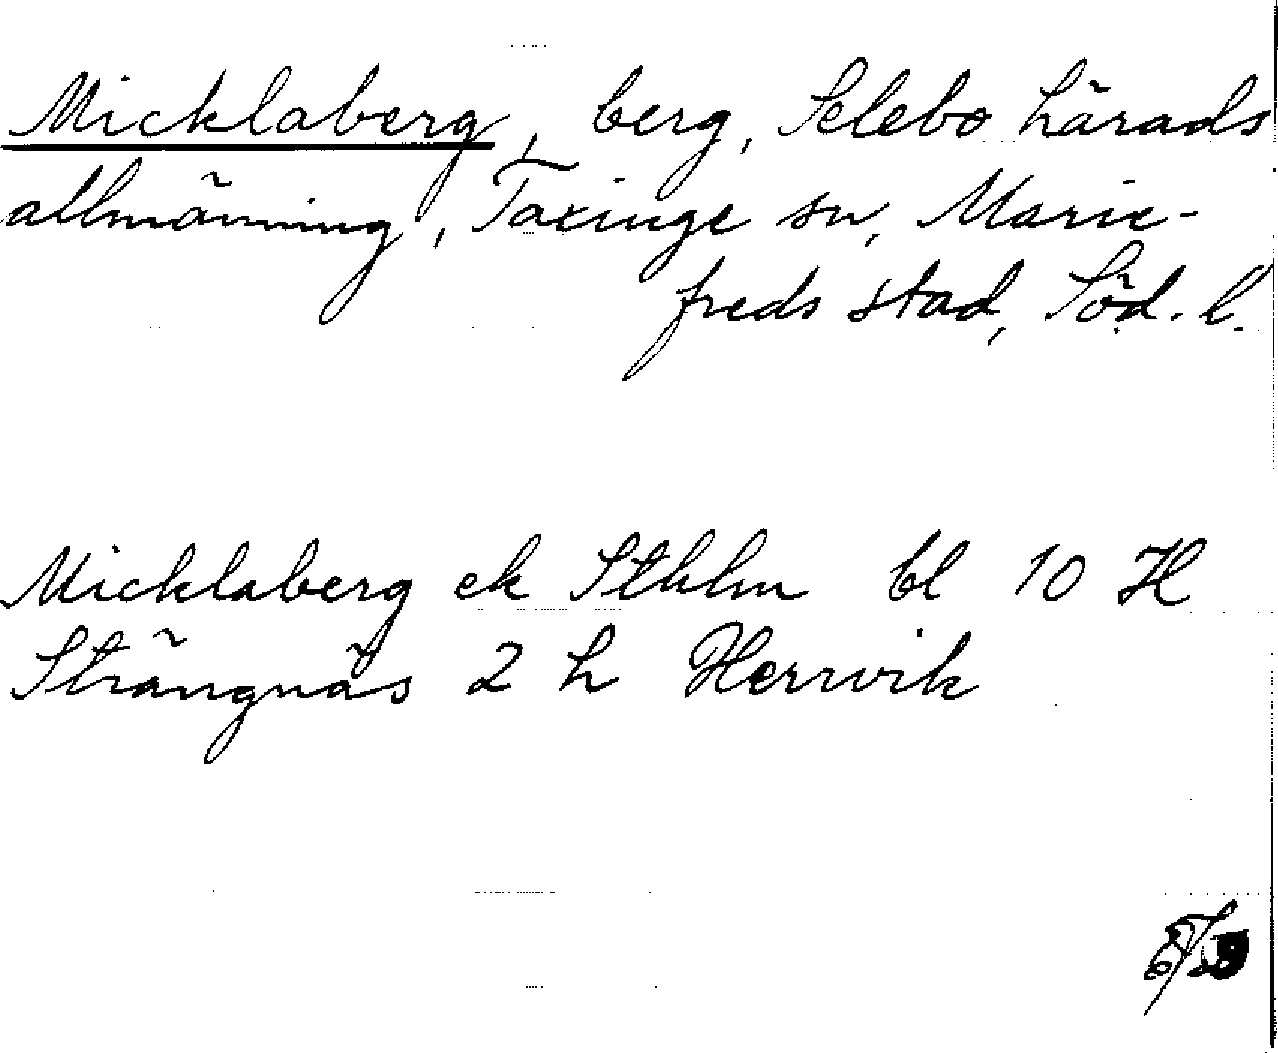 Micklaberg, berg, Selebo härads
allmänning, Taxinge sn, Marie-
freds stad, Söd. l.
Micklaberg ek Sthlm bl 10 H
Strängnäs 2 h Herrvik